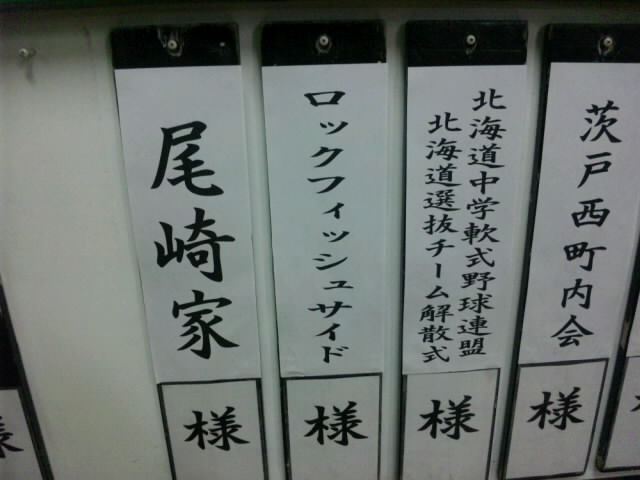 茨戸西町内会
様
北海道中学軟式野球連盟
北海道選抜チーム解散式
様
ロックフィッシュサイド
様
尾崎家
様
様